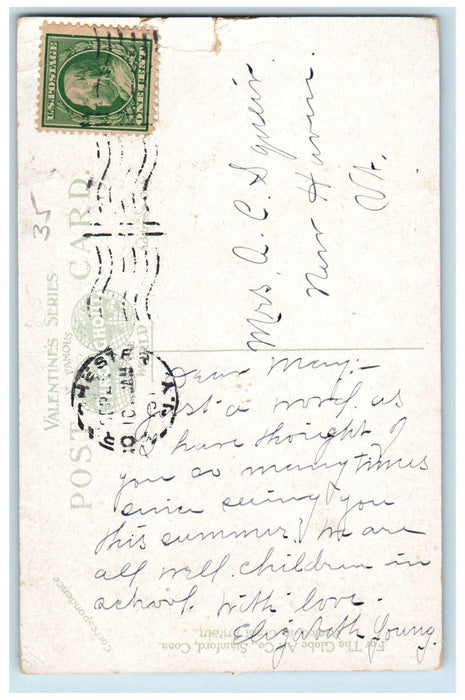 U.S. POSTAGE
ONE CENT
35
VALENTINE'S SERIES
FAMOUS
POST CARD
WORLD
Correspondence
Mrs. A. C. Squier
New Haven
Vt.
Dear May:-
Just a word as
I have thought of
you so many times
since seeing you
this summer. We are
all well. Children in
school. With love.
Elizabeth Young.
For The Globe Art Co., Stamford, Conn.